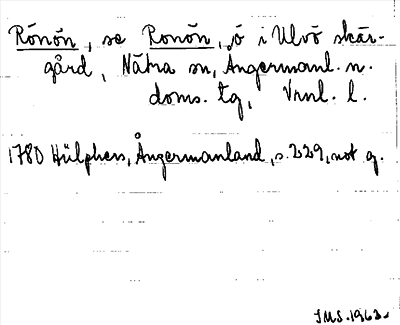 Rönön, se Ronön, ö i Ulvö skär-
gård, Nätra sn, Ångermanl. n.
doms. tg, Vrnl. l.
1780 Hülphers, Ångermanland, s. 229, not g.
JMS. 1963.